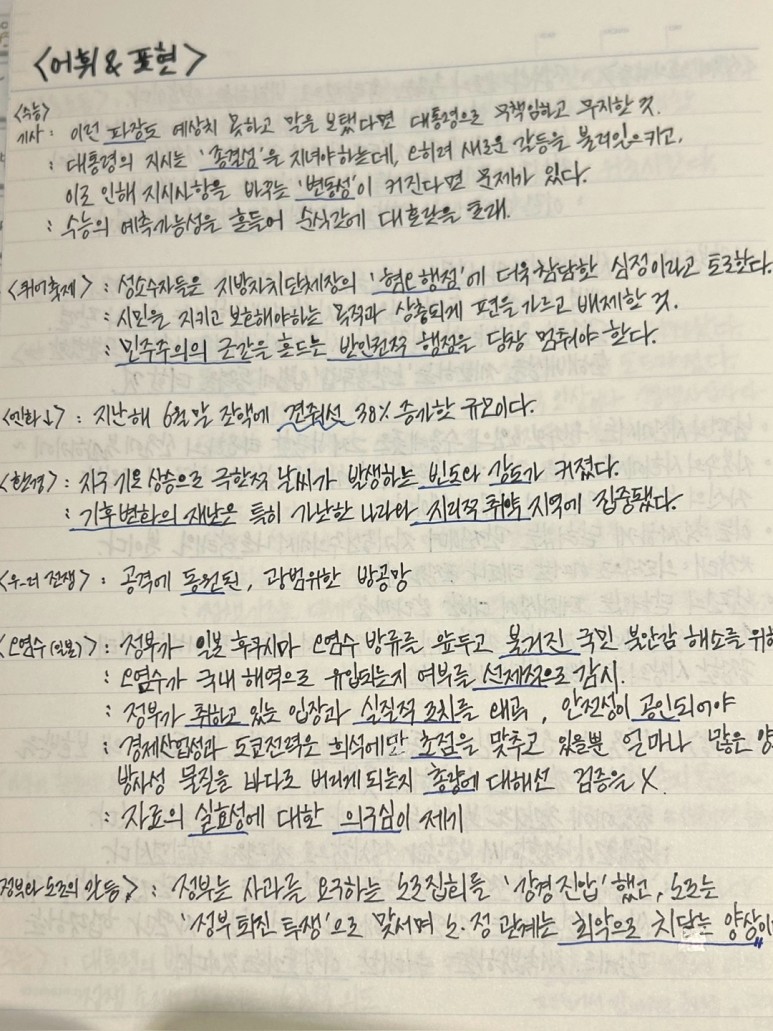 <어휘 & 표현>
<수능>
기사 : 이런 파장도 예상치 못하고 말을 보탰다면 대통령으로 무책임하고 무지한 것.
: 대통령의 지시는 '종결성'을 지녀야하는데, 오히려 새로운 갈등을 불러일으키고,
이로 인해 지시사항을 바꾸는 '변동성'이 커진다면 문제가 있다.
: 수능의 예측가능성을 흔들어 순식간에 대혼란을 초래.
<퀴어축제> : 성소수자들은 지방자치단체장의 '혐오행정'에 더욱 참담한 심정이라고 토로한다.
: 시민을 지키고 보호해야하는 목적과 상충되게 편을 가르고 배제한 것.
: 민주주의의 근간을 흔드는 반인권적 행정을 당장 멈춰야 한다.
<엔화↓> : 지난해 6월말 잔액에 견줘선 38% 증가한 규모이다.
<환경> : 지구 기온 상승으로 극한적 날씨가 발생하는 빈도와 강도가 커졌다.
: 기후변화의 재난은 특히 가난한 나라와 지리적 취약 지역에 집중됐다.
<우-러 전쟁> : 공격에 동원된, 광범위한 방공망
<오염수(일본)> : 정부가 일본 후쿠시마 오염수 방류를 앞두고 불거진 국민 불안감 해소를 위해
: 오염수가 국내 해역으로 유입되는지 여부를 선제적으로 감시.
: 정부가 취하고 있는 입장과 실질적 조치를 왜곡, 안전성이 공인되어야
: 경제산업성과 도쿄전력은 희석에만 초점을 맞추고 있을뿐 얼마나 많은 양
방사성 물질을 바다로 버리게 되는지 총량에 대해선 검증은 X.
: 자료의 실효성에 대한 의구심이 제기
정부와 노조의 갈등> : 정부는 사과를 요구하는 노조집회를 '강경 진압' 했고, 노조는
'정부 퇴진 투쟁'으로 맞서며 노·정 관계는 최악으로 치닫는 양상이